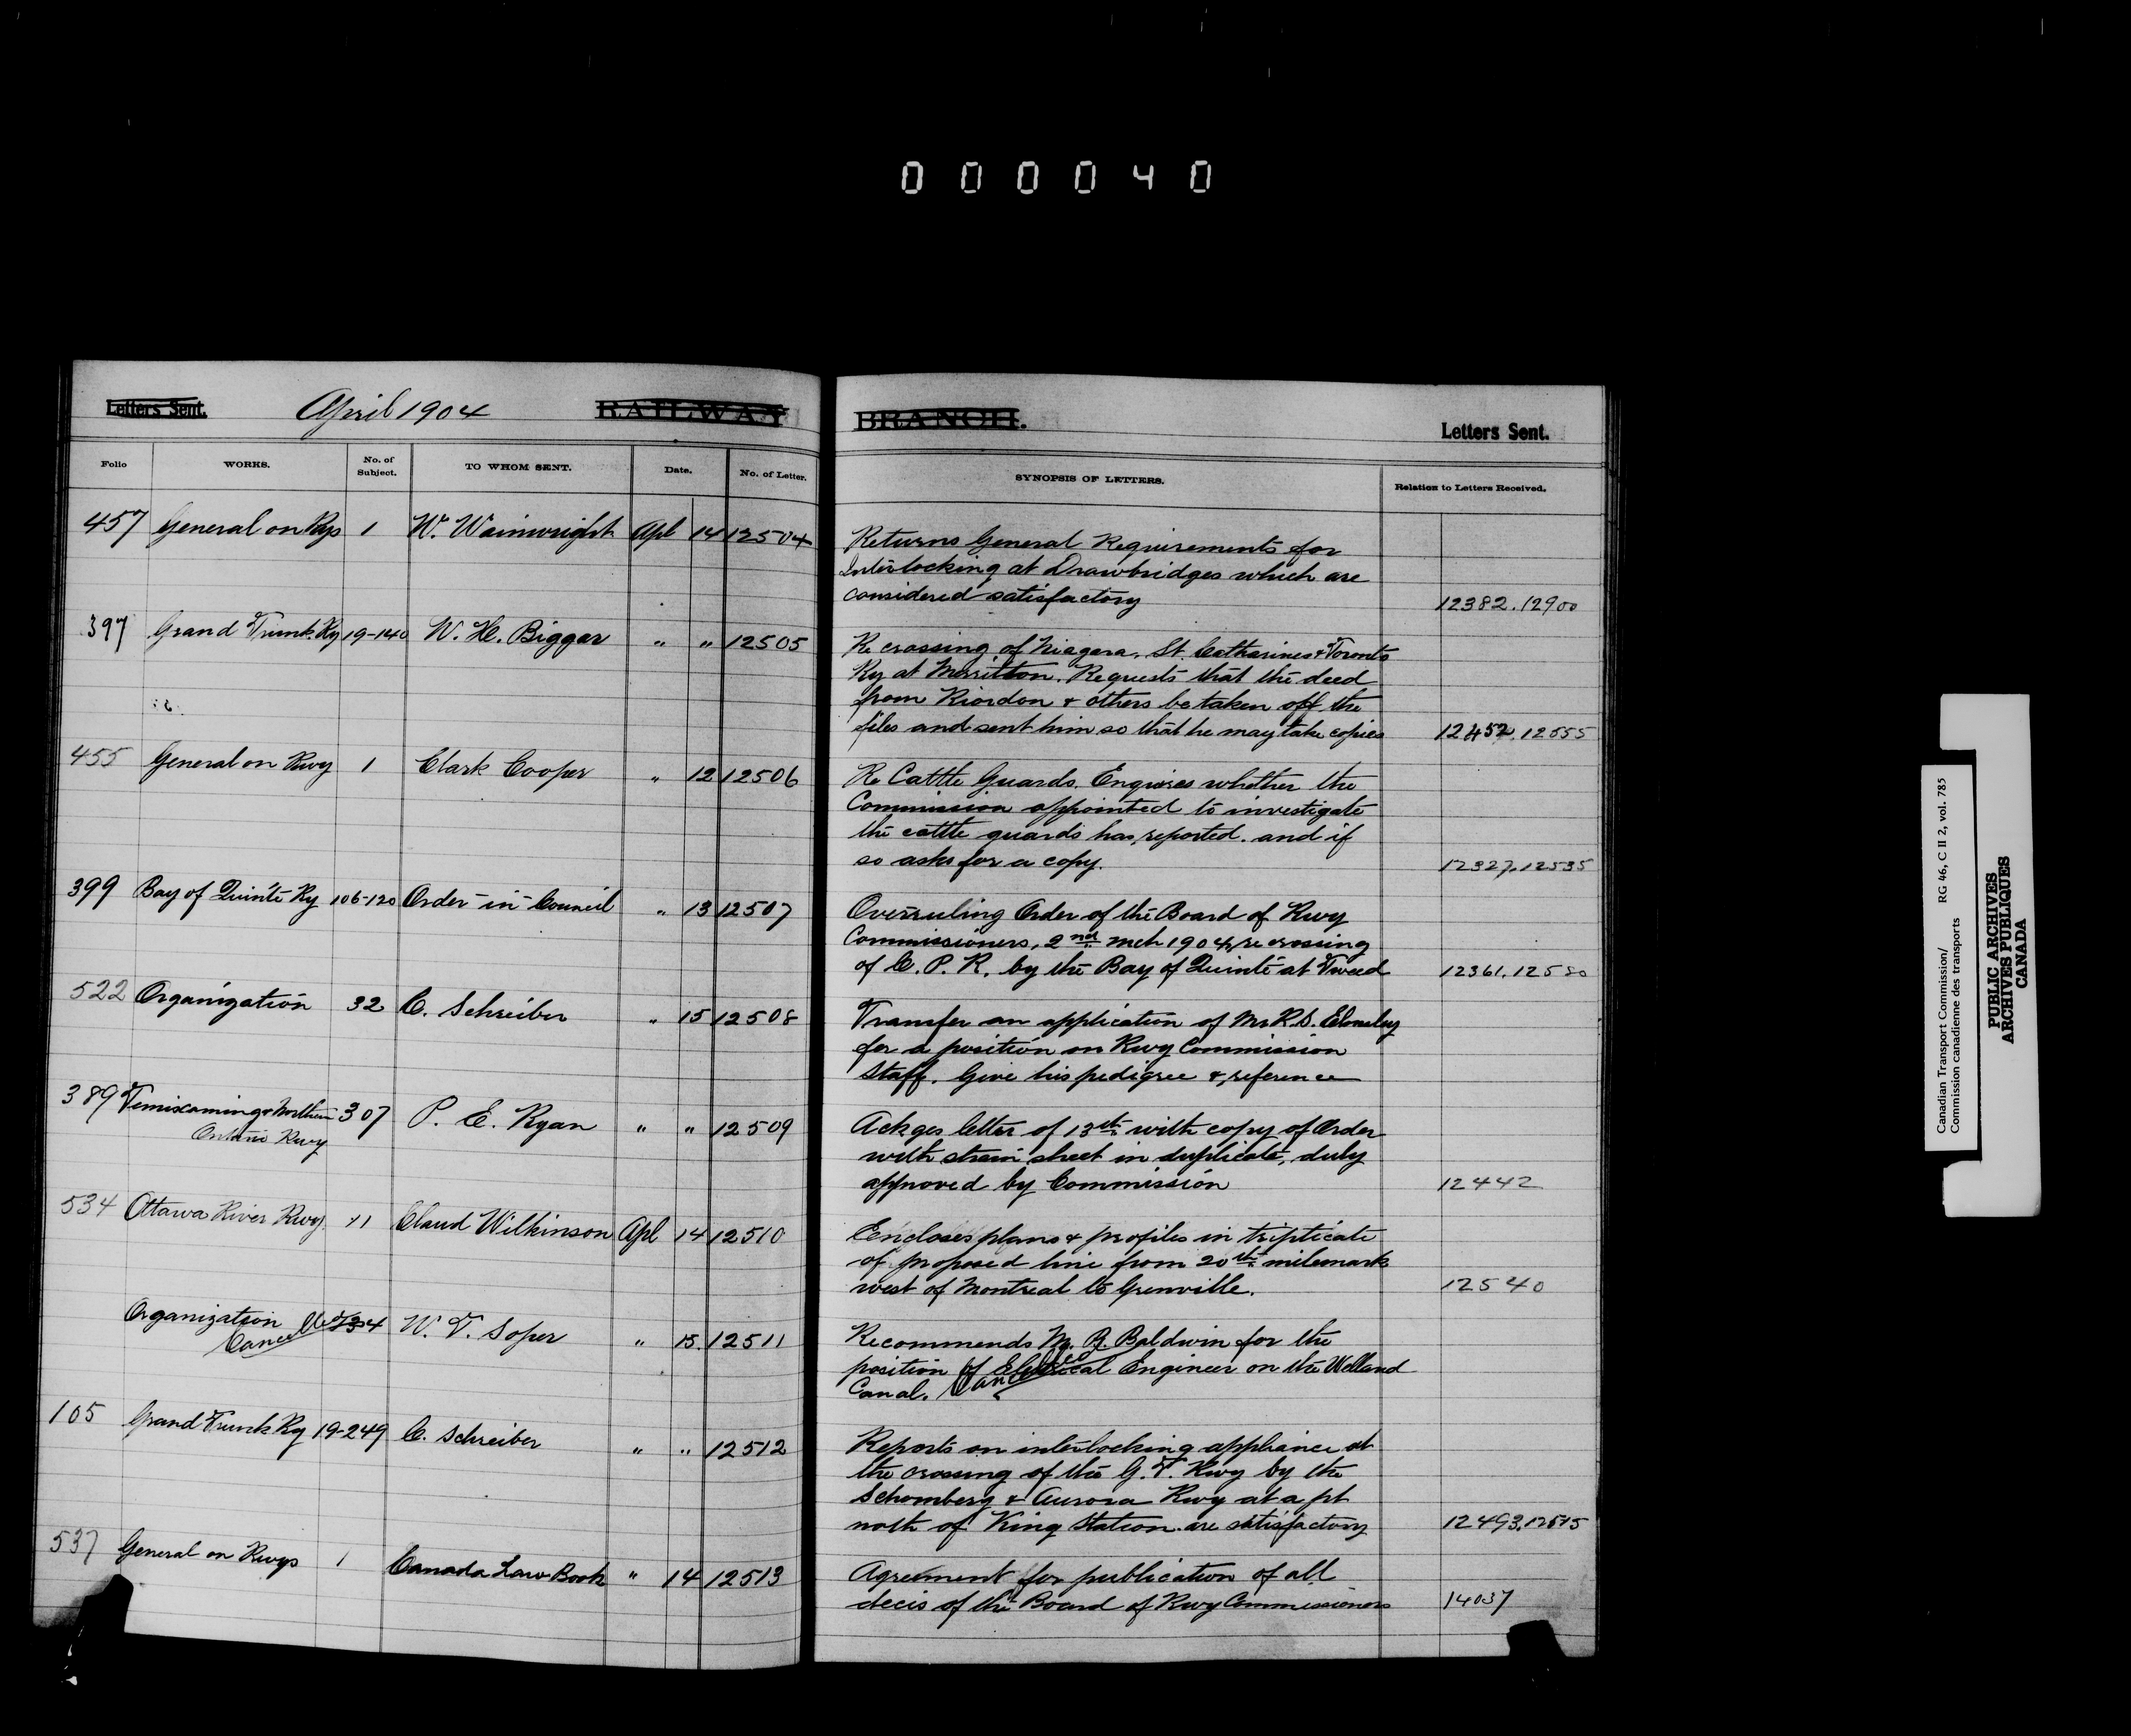 000040
Letters Sent. April 1904 RAILWAY BRANCH. Letters Sent.
Folio WORKS. No. of Subject. TO WHOM SENT. Date. No. of Letter. SYNOPSIS OF LETTERS. Relation to Letters Received.
457 General on Rys 1 W. Wainwright Apl 14 12504 Returns General Requirements for
Interlocking at Drawbridges which are
considered satisfactory 12382. 12900
397 Grand Trunk Ry 19-140 W. H. Biggar " " 12505 Re crossing of Niagara, St. Catharines & Toronto
Ry at Merritton. Requests that the deed
from Riordon & others be taken off the
files and sent him so that he may take copies 12452, 12555
455 General on Rwy 1 Clark Cooper " 12 12506 Re Cattle Guards. Enquires whether the
Commission appointed to investigate
the cattle guards has reported. and if
so asks for a copy. 12327, 12535
399 Bay of Quinté Ry 106-120 Order-in-Council " 13 12507 Overruling Order of the Board of Rwy
Commissioners, 2nd Mch 1904, re crossing
of C. P. R. by the Bay of Quinté at Tweed 12361, 12580
522 Organization 32 C. Schreiber " 15 12508 Transfer an application of Mr R. S. Elmsley
for a position on Rwy Commission
Staff. Give his pedigree & reference
389 Temiscaming & Northern Ontario Rwy 307 P. E. Ryan " " 12509 Ackges letter of 13th with copy of Order
with strain sheet in duplicate, duly
approved by Commission 12442
534 Ottawa River Rwy. 11 Claud Wilkinson Apl 14 12510 Encloses plans & profiles in triplicate
of proposed line from 20th milemark
west of Montreal to Grenville. 12540
Organization Cancelled 34 W. T. Soper " 15. 12511 Recommends Mr. B. Baldwin for the
position of Electrical Engineer on the Welland
Canal.
105 Grand Trunk Ry 19-249 C. Schreiber " " 12512 Reports on interlocking appliance at
the crossing of the G. T. Rwy by the
Schomberg & Aurora Rwy at a pt
north of King Station. are satisfactory 12493, 12515
537 General on Rwys 1 Canada Law Book " 14 12513 Agreement for publication of all
decis of the Board of Rwy Commissioners 14037
Canadian Transport Commission/ RG 46, C II 2, vol. 785
Commission canadienne des transports
PUBLIC ARCHIVES
ARCHIVES PUBLIQUES
CANADA